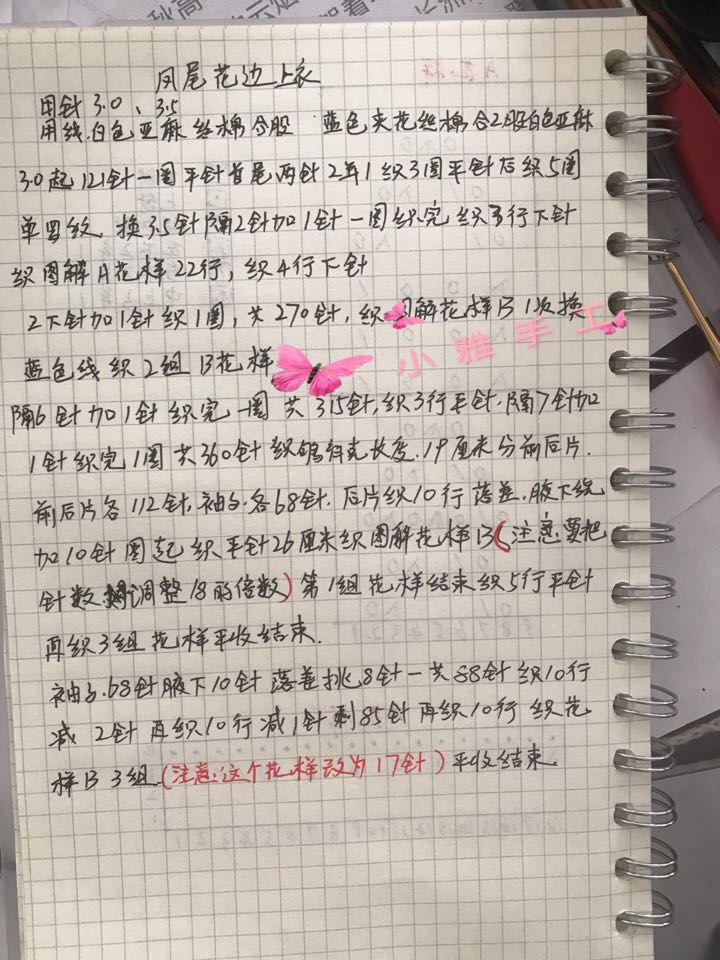 凤尾花边上衣
用针3.0、3.5
用线.白色亚麻丝棉合股 蓝色夹花丝棉合2股白色亚麻
3.0起121针一圈平针首尾两针2并1织3圈平针后织5圈
单罗纹.换3.5针隔2针加1针一圈织完织3行下针
织图解A花样22行,织4行下针
2下针加1针织1圈,共270针,织图解花样B1次换
蓝色线织2组B花样
小雅手工
隔6针加1针织完一圈共315针,织3行平针.隔7针加
1针织完1圈共360针织够斜肩长度.19厘米分前后片.
前后片各112针,袖子.各68针.后片织10行落差.腋下绕
加10针圈起织平针26厘米织图解花样B(注意要把
针数调整18的倍数)第1组花样结束织5行平针
再织3组花样平收结束.
袖子.68针腋下10针落差挑8针一共88针织10行
减2针再织10行减1针剩85针再织10行织花
样B3组(注意:这个花样改为17针)平收结束.